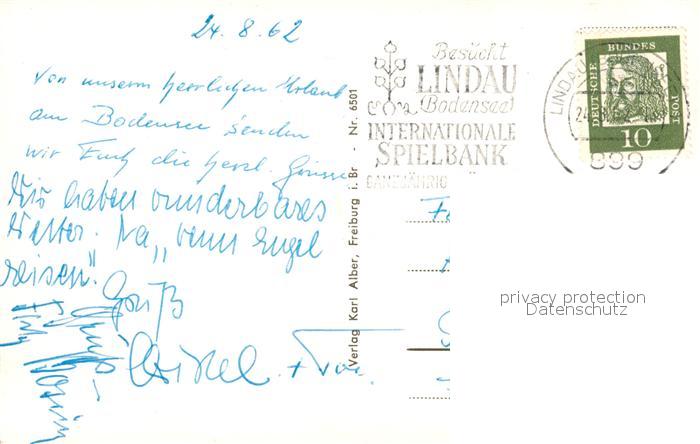 24.8.62
Von unserm herrlichen Urlaub
am Bodensee senden
wir Euch die herzl. Grüsse
Wir haben wunderbares
Wetter. Na, „wenn Engel
reisen".
Gruß
Verlag Karl Alber, Freiburg i. Br - Nr. 6501
Besucht
LINDAU
(Bodensee)
INTERNATIONALE
SPIELBANK
GANZJÄHRIG
LINDAU
899
DEUTSCHE
BUNDES
POST
10
privacy protection
Datenschutz